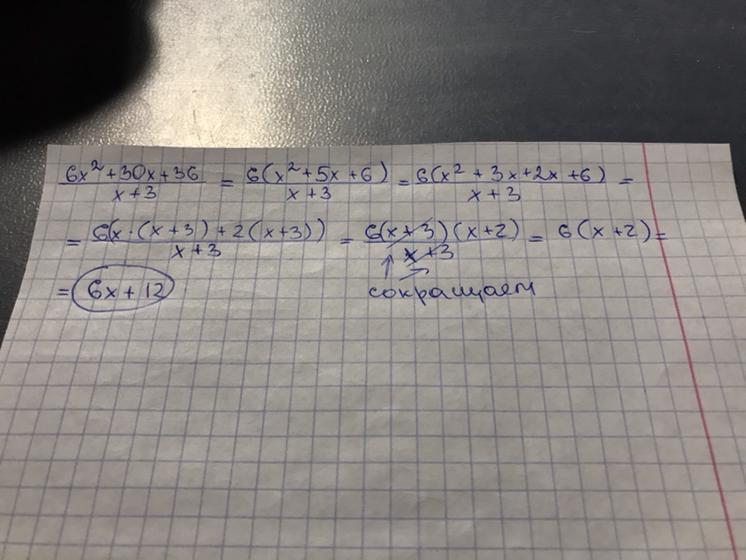 6x²+30x+36 / x+3 = 6(x²+5x+6) / x+3 = 6(x²+3x+2x+6) / x+3 =
= 6(x·(x+3)+2(x+3)) / x+3 = 6(x+3)(x+2) / x+3 = 6(x+2)=
= 6x+12 сокращаем